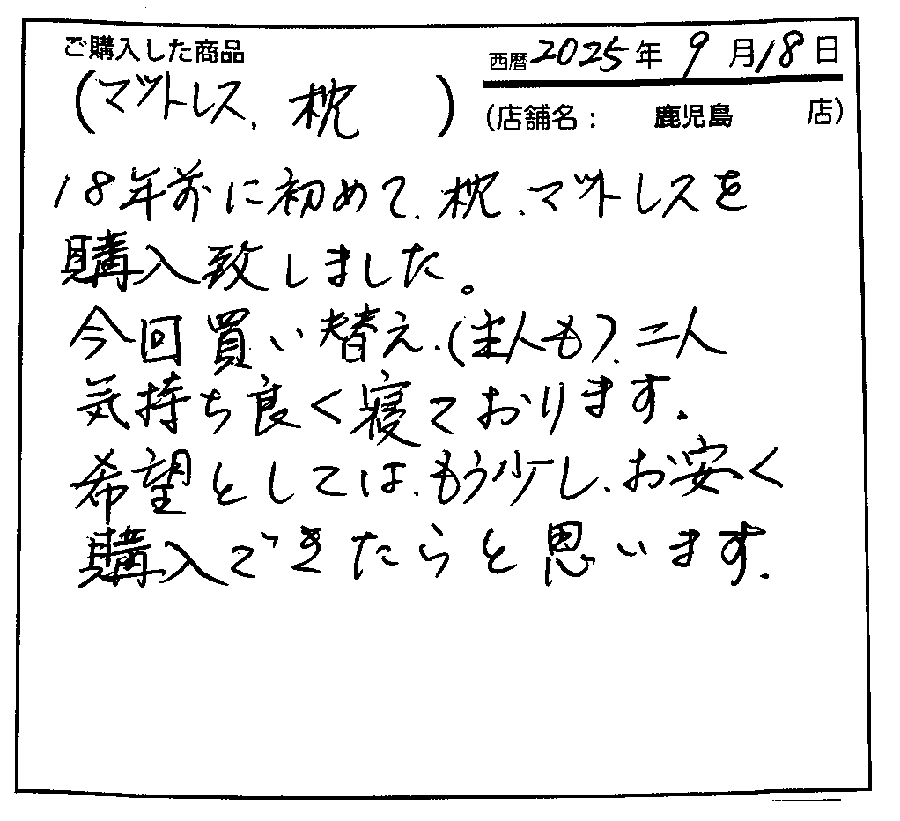 ご購入した商品
西暦2025年9月18日
(マットレス、枕)
(店舗名: 鹿児島 店)
18年前に初めて、枕、マットレスを
購入致しました。
今回買い替え、(主人も)、二人
気持ち良く寝ております。
希望としては、もう少し、お安く
購入できたらと思います。